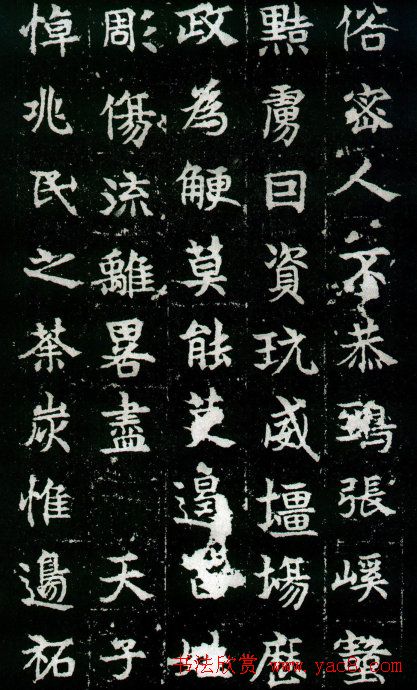 俗密人不恭鵄張嵠
黠虜曰資玩威壃場歷
政為鯁莫能芟邊
彫傷流離畧盡 天子
悼兆民之荼炭惟邊祏
书法欣赏 www.yac8.com